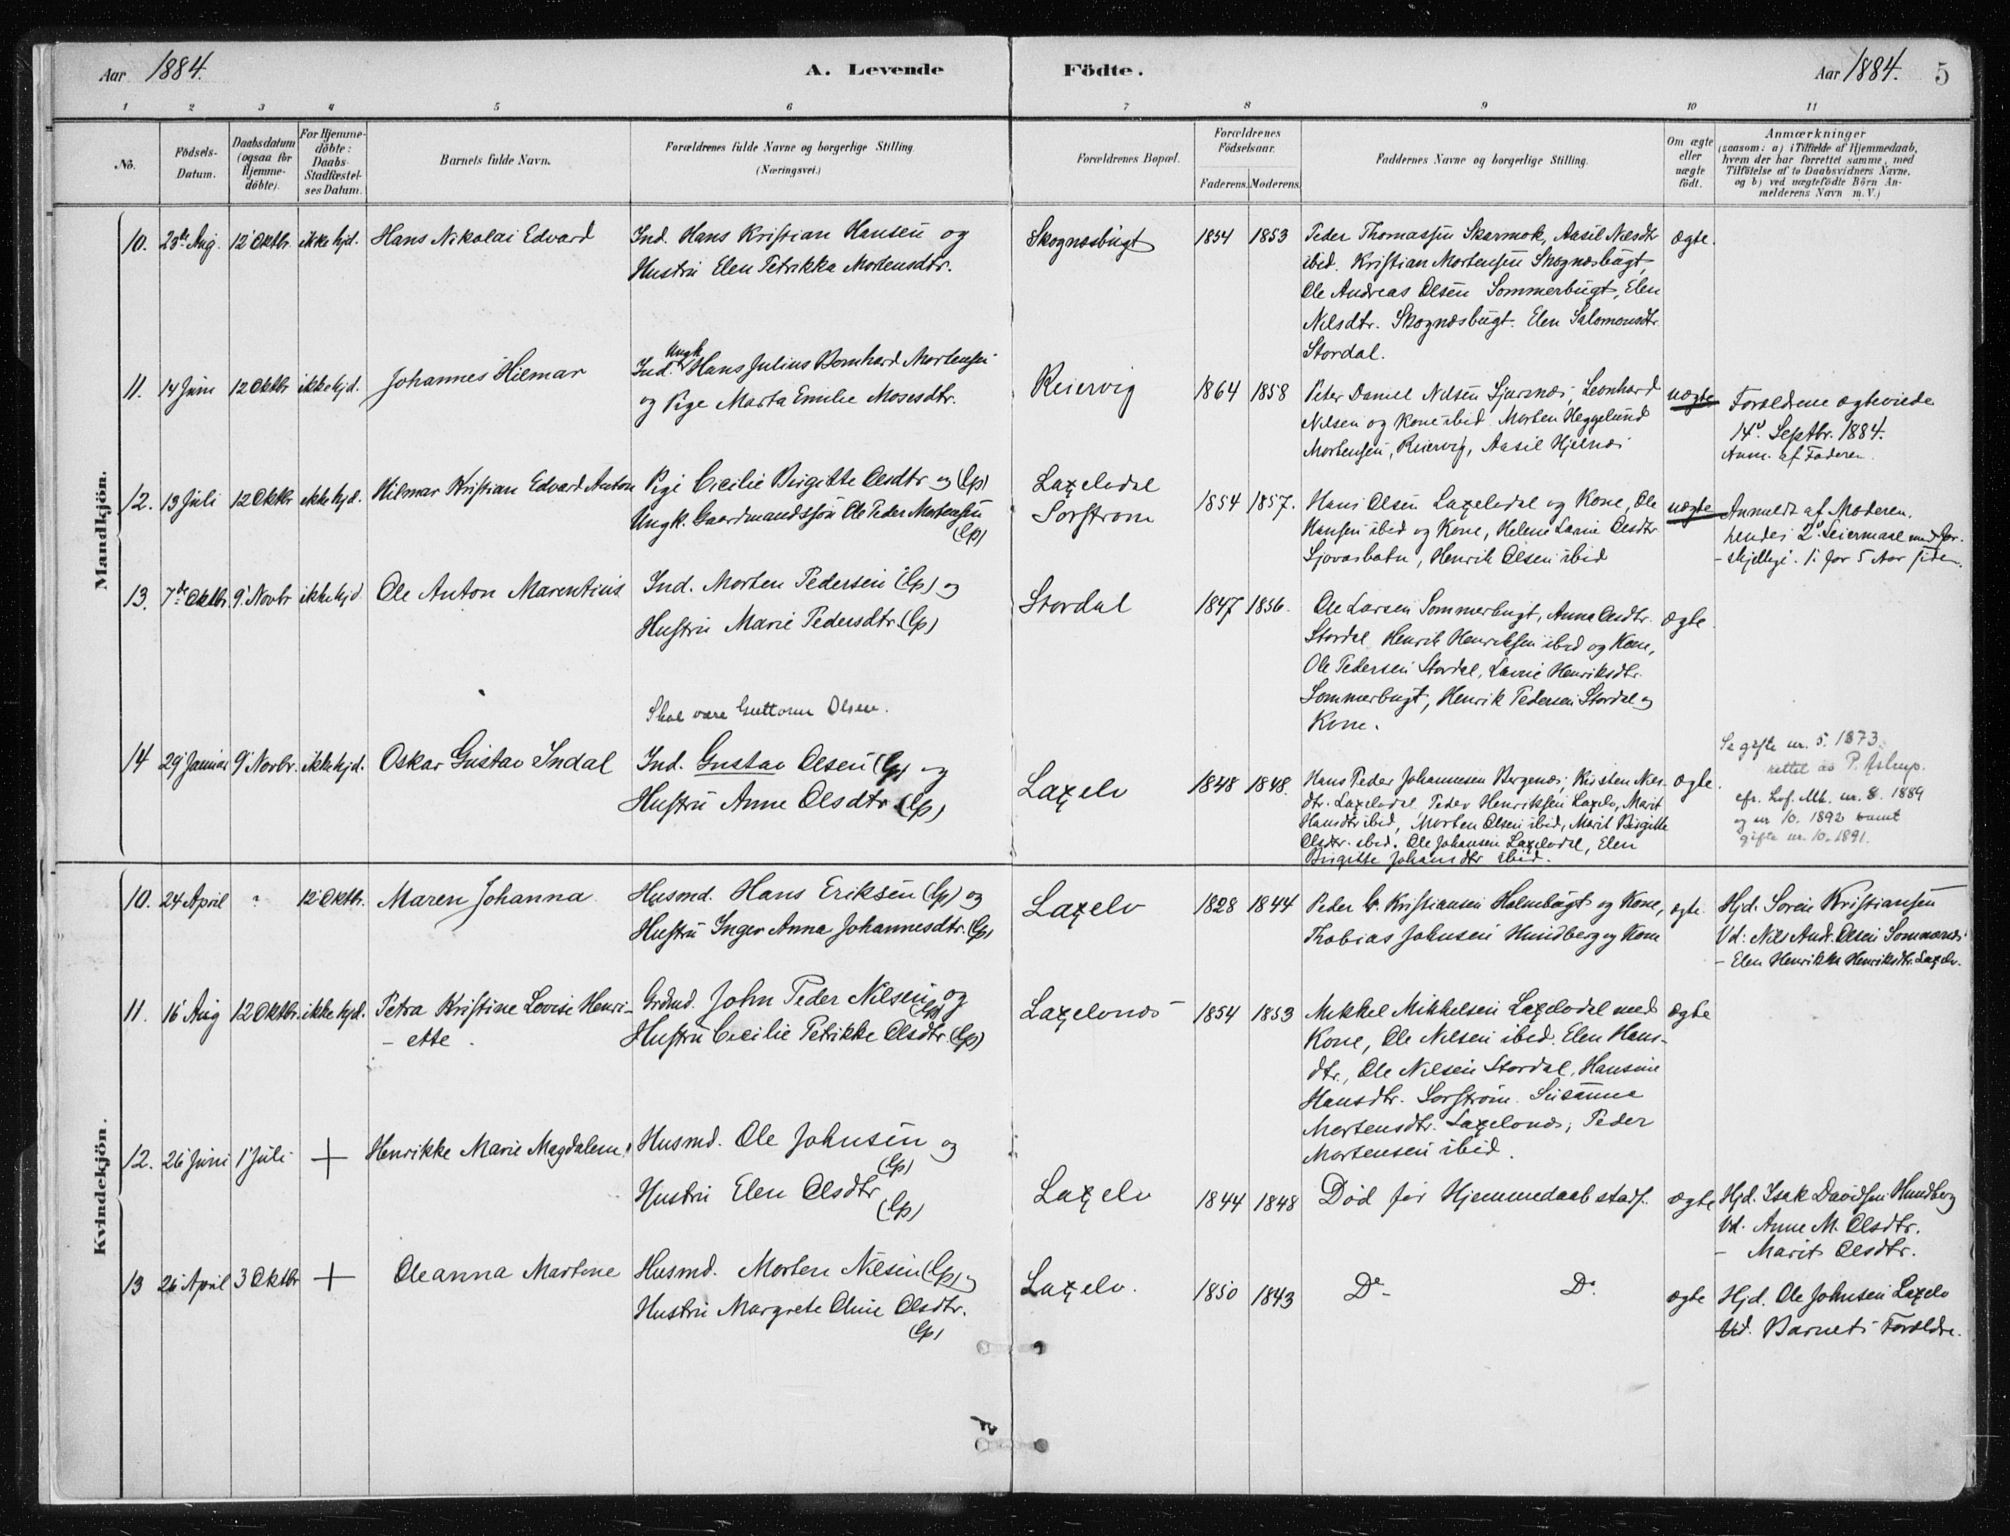 Aar 1884.
A. Levende Födte.
Aar 1884. 5
1 2 3 4 5 6 7 8 9 10 11
No.
Födsels-Datum.
Daabsdatum (ogsaa for Hjemme-döbte).
For Hjemme-döbte: Daabs-Stadfæstel-ses Datum.
Barnets fulde Navn.
Forældrenes fulde Navne og borgerlige Stilling (Næringsvei.)
Forældrenes Bopæl.
Forældrenes Födselsaar.
Faderens. Moderens.
Faddernes Navne og borgerlige Stilling.
Om ægte eller uægte födt.
Anmærkninger
(saasom: a) i Tilfælde af Hjemmedaab,
hvem der har forrettet samme, med
Tilföielse af to Daabsvidners Navne,
og b) ved uægtefödte Börn An-
melderens Navn m. V.)
Mandkjön.
10. 23de Aug. 12 Oktbr. ikke hjd. Hans Nikolai Edvard
Ind. Hans Kristian Hansen og
Hustru Elen Petrikka Mortensdtr.
Skognæsbugt 1854 1853
Peder Thomassen Skarmok, Aasil Nilsdtr
ibid. Kristian Mortensen Skognæsbugt,
Ole Andreas Olsen Sommerbugt, Elen
Nilsdtr. Skognæsbugt. Elen Salomonsdtr.
Stordal.
ægte.
11. 14 Juni 12 Oktbr ikke hjd. Johannes Hilmar
Ungk.
Ind. Hans Julius Bernhard Mortensen
og Pige Marta Emilie Mosesdtr.
Reiervig 1864 1858
Peter Daniel Nilsen Sjursnæs, Leonhard
Nilsen og Kone ibid. Morten Heggelund
Mortensen, Reiervig, Aasil Hjelnæs
uægte
Forældrene ægteviede
14d Septbr. 1884.
Anm. af Faderen.
12. 13 Juli 12 Oktbr ikke hjd. Hilmar Kristian Edvard Anton
Pige Cicilie Birgitte Olsdtr og (Lp)
Ungk. Gaardmandssøn Ole Peder Mortensen
(Lp)
Laxelvdal
Sorstrøm
1854 1857.
Hans Olsen Laxelvdal og Kone, Ole
Hansen ibid og Kone, Helene Lavine Olsdtr
Sjovasbotn, Henrik Olsen ibid
uægte
Anmeldt af Moderen.
hendes 2d Leiermaal med for-
skjellige. 1. for 5 Aar siden.
13. 7de Oktbr. 9 Novbr ikke hjd Ole Anton Marentius
Ind. Morten Pedersen (Lp) og
Hustru Marie Pedersdtr. (Lp)
Stordal 1847 1856.
Ole Larsen Sommerbugt, Anna Olsdtr.
Stordal, Henrik Henriksen ibid og Kone,
Ole Pedersen Stordal, Lavine Henriksdtr.
Sommerbugt, Henrik Pedersen Stordal og
Kone.
ægte.
Skal være Guttorm Olsen.
14 29 Januar 9 Novbr. ikke hjd. Oskar Gustav Indal
Ind. Gustav Olsen (Lp) og
Hustru Anne Olsdtr (Lp)
Laxelv 1848 1848.
Hans Peder Johannesen Bergenæs, Kirsten Niels-
dtr. Laxelvdal Peder Henriksen Laxelv, Marit
Hansdtr ibid, Morten Olsen ibid, Marit Birgitte
Olsdtr. ibid. Ole Johansen Laxelvdal, Elen
Birgitte Johansdtr ibid.
ægte.
Se gifte nr. 5. 1873.
rettet av P. Astrup.
cfr. Konf. Mk. nr. 8. 1889
og nr 10. 1892 samt
gifte nr. 10. 1891.
Kvindekjön.
10. 24 April " 12 Oktbr. Maren Johanna
Husmd. Hans Eriksen (Lp) og
Hustru Inger Anna Johannesdtr. (Lp)
Laxelv 1828 1844
Peder Kristiansen Holmbugt og Kone,
Thobias Johnsen Hundberg og Kone
ægte.
Hjd. Soren Kristiansen
Vd: Nils Andr. Olsen Sommernæs
- Elen Henrikke Henriksdtr. Laxelv.
11. 16 Aug 12 Oktbr. ikke hjd. Petra Kristine Lovise Henri-
- ette.
Grdmd. John Peder Nilsen og
(Lp)
Hustru Cicilie Petrikke Olsdtr (Lp)
Laxelvnæs 1854 1853
Mikkel Mikkelsen Laxelvdal med
Kone, Ole Nilsen ibid. Elen Hans-
dtr., Ole Nilsen Stordal, Hansine
Hansdtr. Sorstrøm. Susanna
Mortensdtr. Laxelvnæs, Peder
Mortensen ibid.
ægte
12. 26 Juni 1 Juli + Henrikke Marie Magdalena
Husmd. Ole Johnsen og
(Lp)
Hustru Elen Olsdtr
(Lp)
Laxelv 1844 1848
Død før Hjemmedaab stadf.
ægte
Hjd. Isak Davidsen Hundberg
Vd. Anne M. Olsdtr.
- Marit Olsdtr.
13 26 April 3 Oktbr + Oleanna Martine
Husmd. Morten Nilsen (Lp) og
Hustru Margrete Oline Olsdtr.
(Lp)
Laxelv. 1850 1843 Do - Do.
ægte
Hjd. Ole Johnsen Laxelv
Vd. Barnets Forældre.